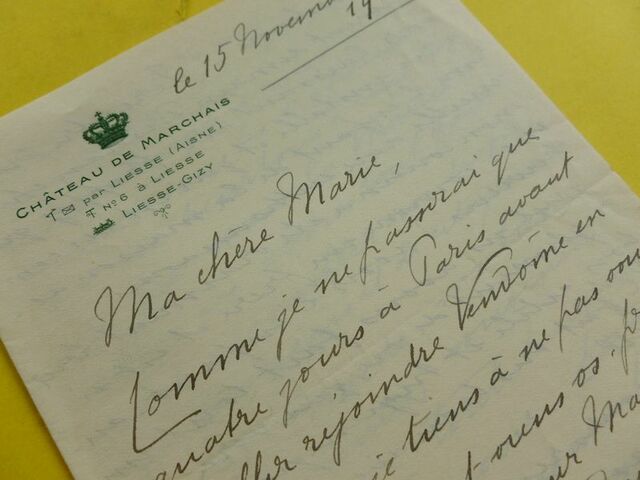 le 15 Novem
19
CHÂTEAU DE MARCHAIS
par LIESSE (AISNE)
N° 6 à LIESSE
LIESSE-GIZY
Ma chère Marie,
Comme je ne passerai que
quatre jours à Paris avant
aller rejoindre Vendôme en
je tiens à ne pas ou